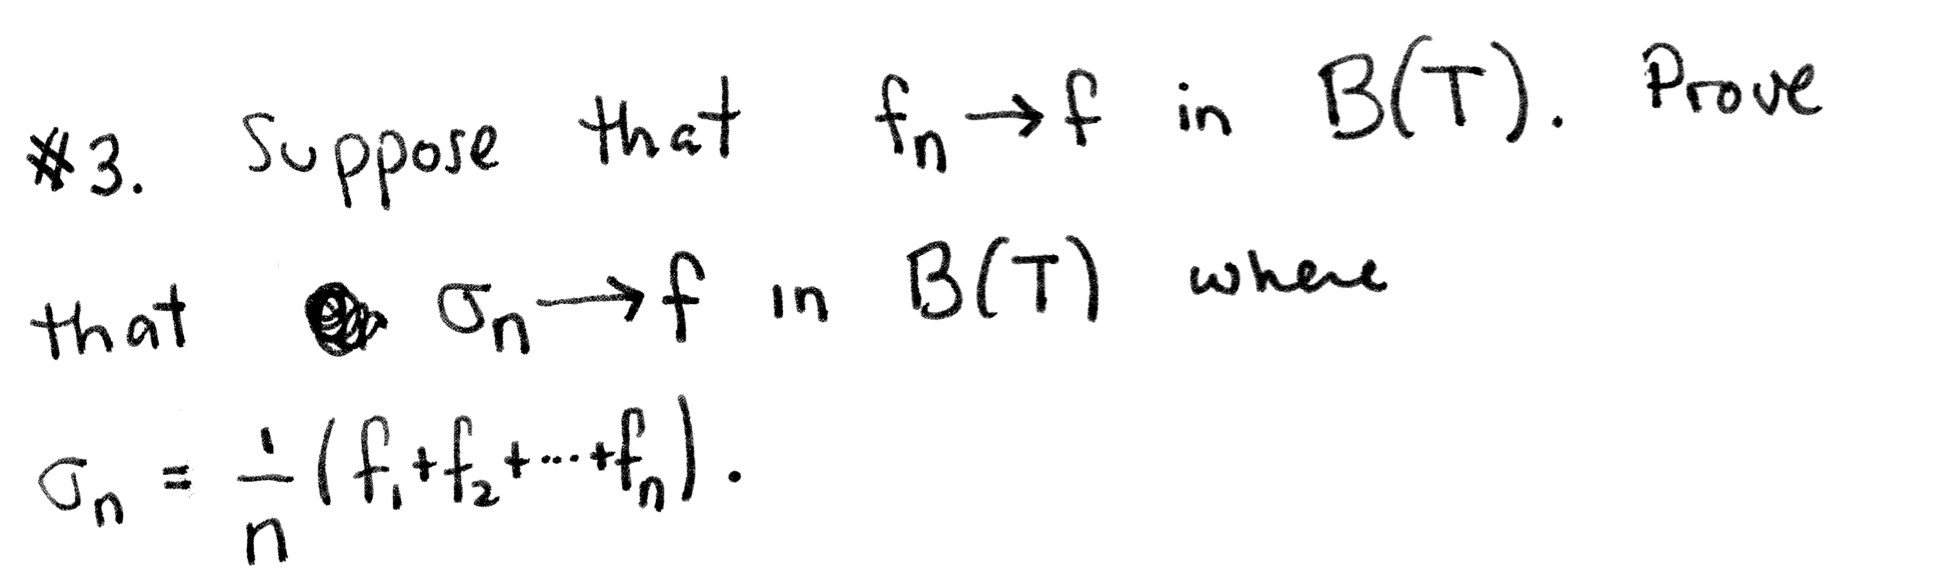 #3. Suppose that fₙ → f in B(T). Prove
that σₙ → f in B(T) where
σₙ = 1/n (f₁+f₂+⋯+fₙ).